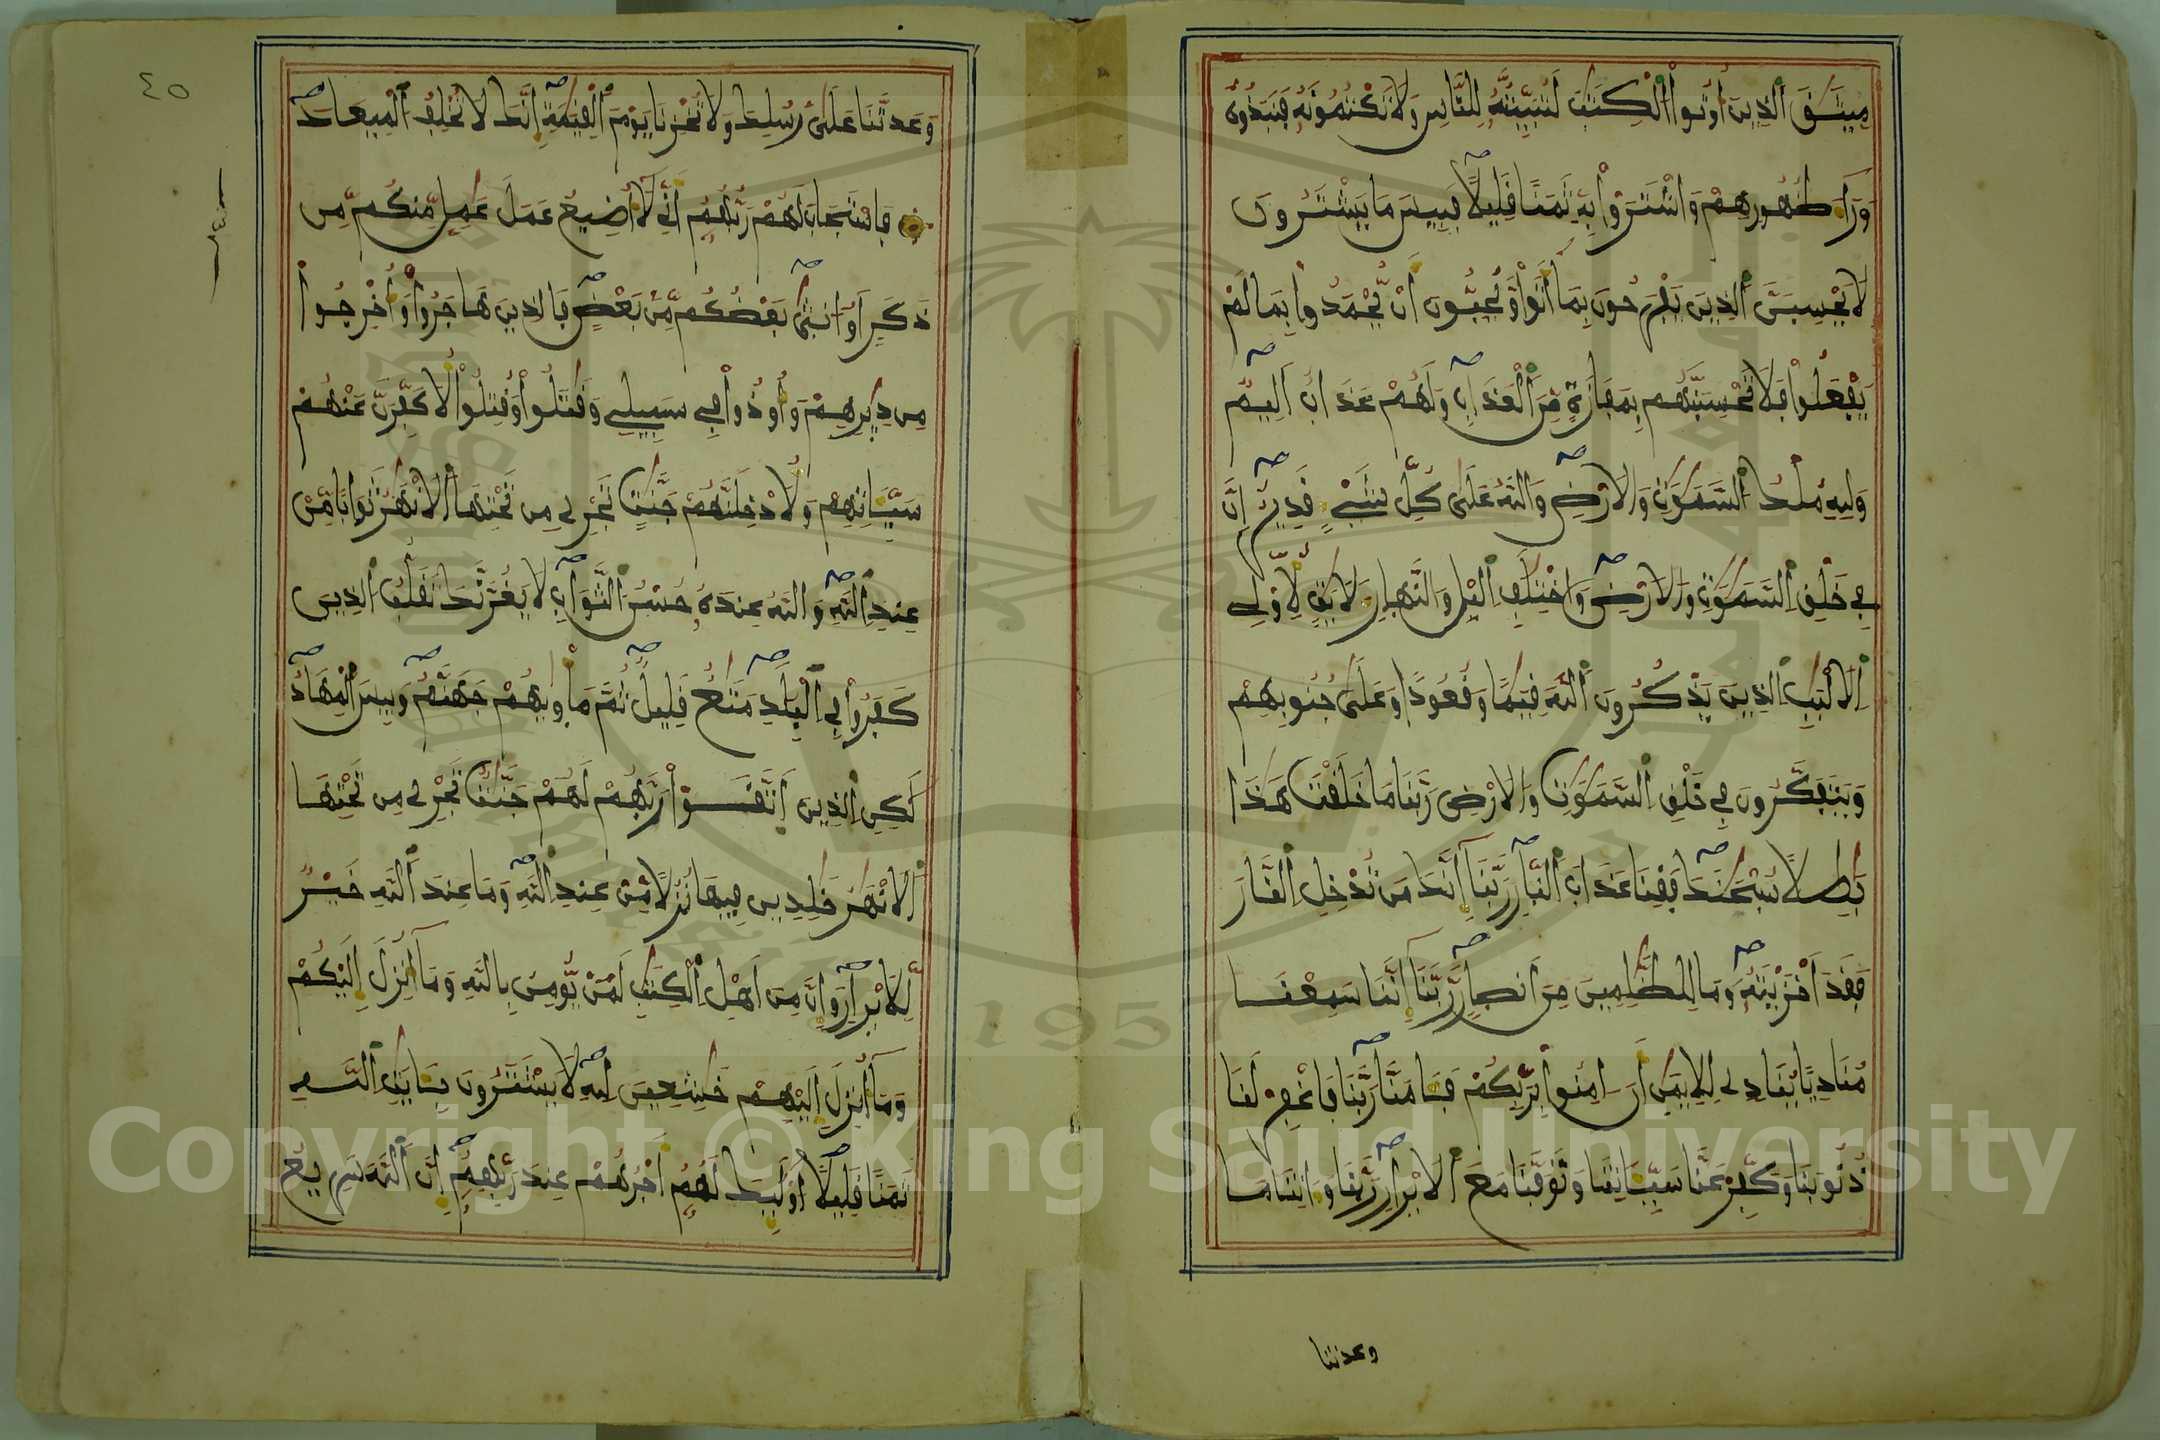 مِيثَٰقَ ٱلذِينَ أُوتُوا۟ ٱلْكِتَٰبَ لَتُبَيِّنُنَّهُۥ لِلنَّاسِ وَلَا تَكْتُمُونَهُۥ فَنَبَذُوهُ
وَرَآءَ ظُهُورِهِمْ وَاشْتَرَوْا۟ بِهِۦ ثَمَنًا قَلِيلًا فَبِيسَ مَا يَشْتَرُونَ
لَا يَحْسِبَنَّ ٱلذِينَ يَفْرَحُونَ بِمَآ أَتَوا۟ وَّيُحِبُّونَ أَنْ يُّحْمَدُوا۟ بِمَا لَمْ
يَفْعَلُوا۟ فَلَا تَحْسِبَنَّهُم بِمَفَازَةٍ مِّنَ ٱلْعَذَابِ وَلَهُمْ عَذَابٌ اَلِيمٌ
وَلِلهِ مُلْكُ ٱلسَّمَٰوَٰتِ وَالَارْضِ وَاللَّهُ عَلَىٰ كُلِّ شَيْءٍ قَدِيرٌ اِنَّ
فِي خَلْقِ ٱلسَّمَٰوَٰتِ وَالَارْضِ وَاخْتِلَٰفِ ٱليْلِ وَالنَّهَارِ لَأٓيَٰتٍ لِّأُو۟لِي
اِ۬لَالْبَٰبِ ٱلذِينَ يَذْكُرُونَ ٱللَّهَ قِيَٰمًا وَقُعُودًا وَعَلَىٰ جُنُوبِهِمْ
وَيَتَفَكَّرُونَ فِي خَلْقِ ٱلسَّمَٰوَٰتِ وَالَارْضِ رَبَّنَا مَا خَلَقْتَ هَٰذَا
بَٰطِلًا سُبْحَٰنَكَ فَقِنَا عَذَابَ ٱلنَّارِ رَبَّنَآ إِنَّكَ مَن تُدْخِلِ ٱلنَّارَ
فَقَدَ اَخْزَيْتَهُۥ وَمَا لِلظَّٰلِمِينَ مِنَ اَنصَارٍ رَّبَّنَآ إِنَّنَا سَمِعْنَا
مُنَادِيًا يُنَادِي لِلِايمَٰنِ أَنَ اٰمِنُوا۟ بِرَبِّكُمْ فَـَٔامَنَّا رَبَّنَا فَاغْفِرْ لَنَا
ذُنُوبَنَا وَكَفِّرْ عَنَّا سَيِّـَٔاتِنَا وَتَوَفَّنَا مَعَ اَ۬لَابْرَارِ رَبَّنَا وَءَاتِنَا مَا
وعدتنا
٤٥
وَعَدتَّنَا عَلَىٰ رُسُلِكَ وَلَا تُخْزِنَا يَوْمَ ٱلْقِيَٰمَةِ إِنَّكَ لَا تُخْلِفُ ٱلْمِيعَادَ
فَاسْتَجَابَ لَهُمْ رَبُّهُمُۥ أَنِّي لَآ أُضِيعُ عَمَلَ عَٰمِلٍ مِّنكُم مِّن
ذَكَرٍ اَوُ ا۟نثَىٰ بَعْضُكُم مِّنۢ بَعْضٍ فَالذِينَ هَاجَرُوا۟ وَأُخْرِجُوا۟
مِن دِيَٰرِهِمْ وَأُوذُوا۟ فِي سَبِيلِي وَقَٰتَلُوا۟ وَقُتِلُوا۟ لَأُكَفِّرَنَّ عَنْهُمْ
سَيِّـَٔاتِهِمْ وَلَأُدْخِلَنَّهُمْ جَنَّٰتٍ تَجْرِي مِن تَحْتِهَا ٱلَانْهَٰرُ ثَوَابًا مِّنْ
عِندِ ٱللَّهِ وَاللَّهُ عِندَهُۥ حُسْنُ ٱلثَّوَابِ لَا يَغُرَّنَّكَ تَقَلُّبُ ٱلذِينَ
كَفَرُوا۟ فِي ٱلْبِلَٰدِ مَتَٰعٌ قَلِيلٌ ثُمَّ مَأْوٜيٰهُمْ جَهَنَّمُ وَبِيسَ ٱلْمِهَادُ
لَٰكِنِ ٱلذِينَ اَتَّقَوْا۟ رَبَّهُمْ لَهُمْ جَنَّٰتٌ تَجْرِي مِن تَحْتِهَا
اَ۬لَانْهَٰرُ خَٰلِدِينَ فِيهَا نُزُلًا مِّنْ عِندِ ٱللَّهِ وَمَا عِندَ ٱللَّهِ خَيْرٌ
لِّلَابْرَارِ وَإِنَّ مِنَ اَهْلِ ٱلْكِتَٰبِ لَمَنْ يُّومِنُ بِاللَّهِ وَمَآ أُنزِلَ إِلَيْكُمْ
وَمَآ أُنزِلَ إِلَيْهِمْ خَٰشِعِينَ لِلهِ لَا يَشْتَرُونَ بِـَٔايَٰتِ ٱللَّهِ
ثَمَنًا قَلِيلًا اُو۟لَٰٓئِكَ لَهُمُۥ أَجْرُهُمْ عِندَ رَبِّهِمُۥ إِنَّ ٱللَّهَ سَرِيعُ
1957
Copyright © King Saud University